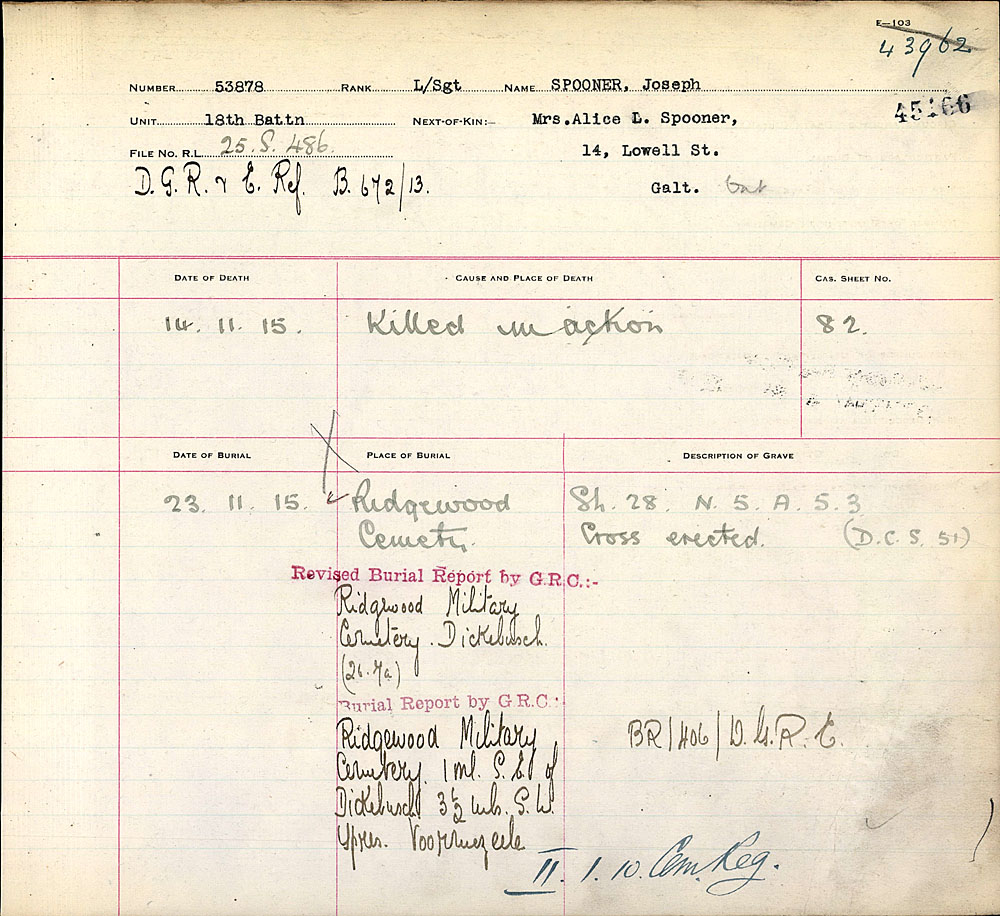 E—103
43962
NUMBER 53878 RANK L/Sgt NAME SPOONER, Joseph
45166
UNIT 18th Battn NEXT-OF-KIN:— Mrs.Alice L. Spooner,
FILE NO. R.L. 25. S. 486. 14, Lowell St.
D. G. R. & E. Ref. B. 672/13. Galt. Ont
DATE OF DEATH CAUSE AND PLACE OF DEATH CAS. SHEET NO.
14. 11. 15. Killed in action 82.
DATE OF BURIAL PLACE OF BURIAL DESCRIPTION OF GRAVE
23. 11. 15. Ridgewood Sh. 28. N. 5. A. 5. 3
Cemety. Cross erected. (D.C.S. 51)
Revised Burial Report by G.R.C.:-
Ridgewood Military
Cemetery. Dickebusch.
(26. 7a)
Burial Report by G.R.C.:
Ridgewood Military BR/406/D.G.R.E.
Cemetery. 1 ml. S.E. of
Dickebusch 3½ mls. S.W.
Ypres. Voormezeele
II. 1. 10. Cem. Reg.